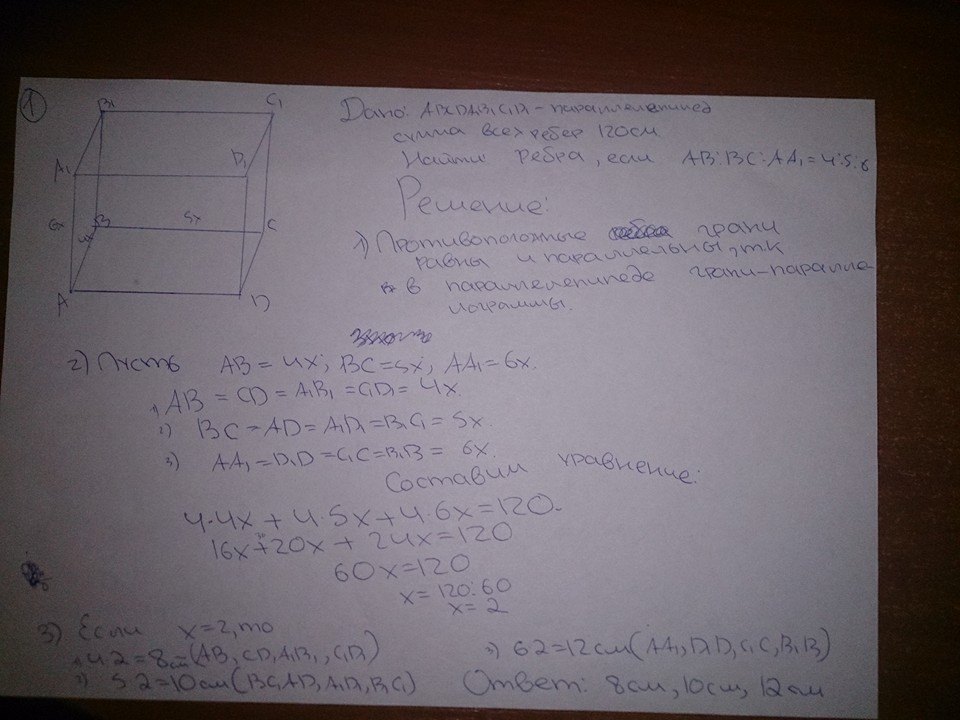 1
B1 C1
A1 D1
B C
A D
6x 4x 5x
Дано: ABCDA1B1C1D1 - параллелепипед
сумма всех ребер 120 см
Найти ребра, если AB:BC:AA1=4:5:6
Решение:
1) Противоположные грани
равны и параллельны, т.к
в параллелепипеде грани-паралле
лограммы.
2) Пусть AB=4x; BC=5x; AA1=6x.
1) AB=CD=A1B1=C1D1=4x.
2) BC=AD=A1D1=B1C1=5x.
3) AA1=D1D=C1C=B1B=6x.
Составим уравнение:
4·4x+4·5x+4·6x=120.
16x+20x+24x=120
60x=120
x=120:60
x=2
3) Если x=2, то
1) 4·2=8см(AB, CD, A1B1, C1D1)
2) 5·2=10см(BC, AD, A1D1, B1C1)
3) 6·2=12см(AA1, D1D, C1C, B1B)
Ответ: 8см, 10см, 12см